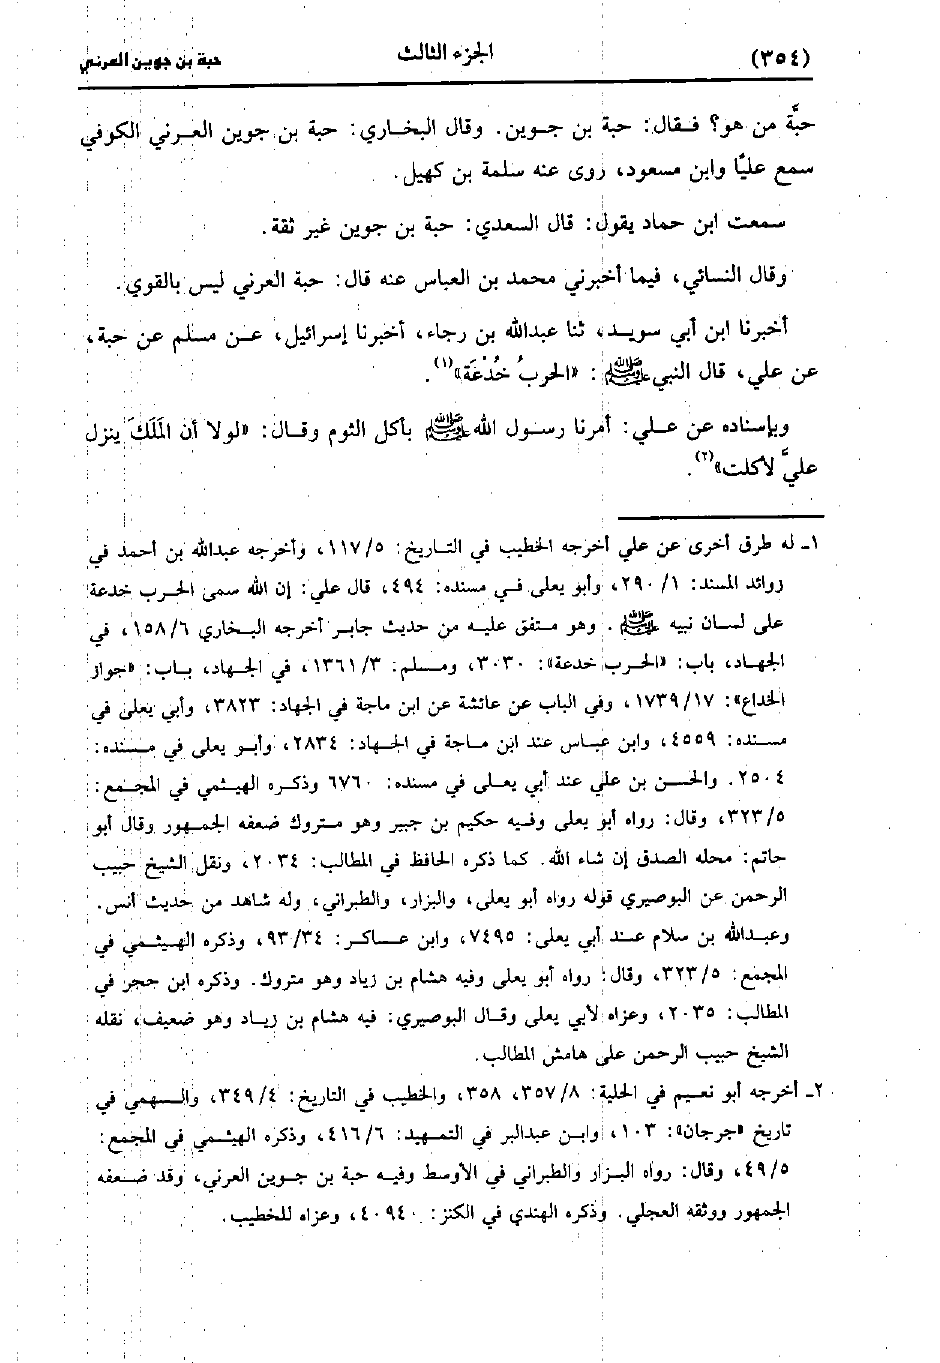 (٣٥٤) الجزء الثالث حبة بن جوين العرني
حبَّة من هو؟ فـقال: حبة بن جـوين. وقال البخـاري: حبة بن جوين العـرني الكوفي
سمع عليًا وابن مسعود، روى عنه سلمة بن كهيل.
سمعت ابن حماد يقول: قال السعدي: حبة بن جوين غير ثقة.
وقال النسائي، فيما أخبرني محمد بن العباس عنه قال: حبة العرني ليس بالقوي.
أخبرنا ابن أبي سويـد، ثنا عبدالله بن رجاء، أخبرنا إسرائيل، عـن مسلم عن حبة،
عن علي، قال النبي ﷺ: «الحربُ خُدْعَة»(١).
وبإسناده عن عـلي: أمرنا رسـول الله ﷺ بأكل الثوم وقـال: «لولا أن المَلَكَ ينزل
عليَّ لأكلت»(٢).
١ـ له طرق أخرى عن علي أخرجه الخطيب في التـاريخ: ١١٧/٥، وأخرجه عبدالله بن أحمد في
زوائد المسند: ٢٩٠/١، وأبو يعلى فـي مسنده: ٤٩٤، قال علي: إن الله سمى الحـرب خدعة
على لسـان نبيه ﷺ. وهو متـفق عليـه من حديث جابـر أخرجه البـخاري ١٥٨/٦، في
الجهـاد، باب: «الحـرب خدعة»: ٣٠٣٠، ومـسلم: ١٣٦١/٣، في الجـهاد، بـاب: «جواز
الخداع»: ١٧٣٩/١٧، وفي الباب عن عائشة عن ابن ماجة في الجهاد: ٣٨٢٣، وأبي يعلى في
مسـنده: ٤٥٥٩، وابن عبـاس عند ابن مـاجة في الجـهاد: ٢٨٣٤، وأبـو يعلى في مـسنده:
٢٥٠٤. والحـسن بن علي عند أبي يعـلى في مسنده: ٦٧٦٠ وذكـره الهيثمي في المجـمع:
٣٢٣/٥، وقال: رواه أبو يعلى وفيه حكيم بن جبير وهو متروك ضعفه الجمهور وقال أبو
حاتم: محله الصدق إن شاء الله. كما ذكره الحافظ في المطالب: ٢٠٣٤، ونقل الشيخ حبيب
الرحمن عن البوصيري قوله رواه أبو يعلى، والبزار، والطبراني، وله شاهد من حديث أنس.
وعبدالله بن سلام عنـد أبي يعلى: ٧٤٩٥، وابن عـساكر: ٩٣/٣٤، وذكره الهـيثمي في
المجمع: ٣٢٣/٥، وقال: رواه أبو يعلى وفيه هشام بن زياد وهو متروك. وذكره ابن حجر في
المطالب: ٢٠٣٥، وعزاه لأبي يعلى وقـال البوصيري: فيه هشام بن زيـاد وهو ضعيف، نقله
الشيخ حبيب الرحمن على هامش المطالب.
٢ـ أخرجه أبو نعـيم في الحلية: ٣٥٧/٨، ٣٥٨، والخطيب في التاريخ: ٣٤٩/٤، والـسهمي في
تاريخ «جرجان»: ١٠٣، وابـن عبدالبر في التمهيد: ٤١٦/٦، وذكره الهيثـمي في المجمع:
٤٩/٥، وقال: رواه البـزار والطبراني في الأوسط وفيـه حبة بن جـوين العرني، وقد ضـعفه
الجمهور ووثقه العجلي. وذكره الهندي في الكنز: ٤٠٩٤٠، وعزاه للخطيب.